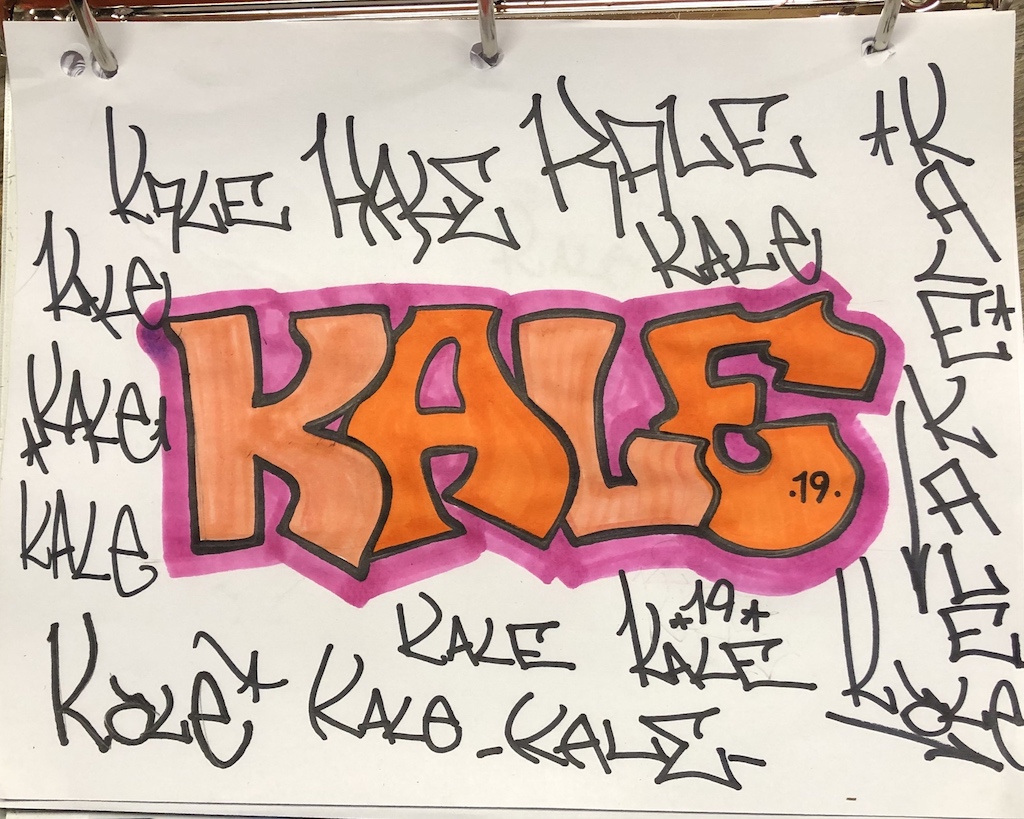 KALE
KALE
KALE
*KALE*
KALE
KALE
KALE
.19.
KALE
KALE
KALE
KALE
*19*
KALE
KALE
KALE
KALE*
KALE
-KALE-